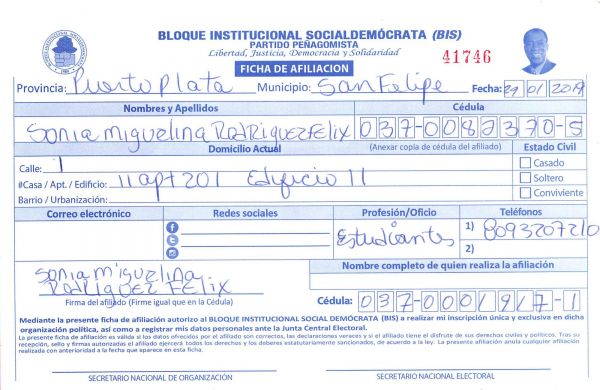 BLOQUE INSTITUCIONAL SOCIALDEMÓCRATA (BIS)
PARTIDO PEÑAGOMISTA
Libertad, Justicia, Democracia y Solidaridad
41746
FICHA DE AFILIACION
Provincia: Puerto Plata Municipio: San Felipe Fecha: 29/01/2019
Nombres y Apellidos Cédula
Sonia Miguelina RodRiguez Felix 037-0082370-5
Domicilio Actual (Anexar copia de cédula del afiliado) Estado Civil
Calle: 1 Casado
#Casa / Apt. / Edificio: 11 apt 201 Edificio 11 Soltero
Barrio / Urbanización: Conviviente
Correo electrónico Redes sociales Profesión/Oficio Teléfonos
Estudiantes 1) 8093207210
2)
Sonia Miguelina
RodRiguez Felix
Nombre completo de quien realiza la afiliación
Firma del afiliado (Firme igual que en la Cédula)
Cédula: 037-0001917-1
Mediante la presente ficha de afiliación autorizo al BLOQUE INSTITUCIONAL SOCIAL DEMÓCRATA (BIS) a realizar mi inscripción única y exclusiva en dicha
organización política, así como a registrar mis datos personales ante la Junta Central Electoral.
La presente ficha de afiliación es válida si los datos ofrecidos por el afiliado son correctos, las declaraciones veraces y si el afiliado tiene el disfrute de sus derechos civiles y políticos. Tras su
recepción, sello y firmas autorizadas el afiliado ejercerá todos los derechos y los deberes estatutariamente sancionados, de acuerdo a la ley. La presente afiliación anula cualquier afiliación
realizada con anterioridad a la fecha que aparece en esta ficha.
SECRETARIO NACIONAL DE ORGANIZACIÓN SECRETARIO NACIONAL ELECTORAL